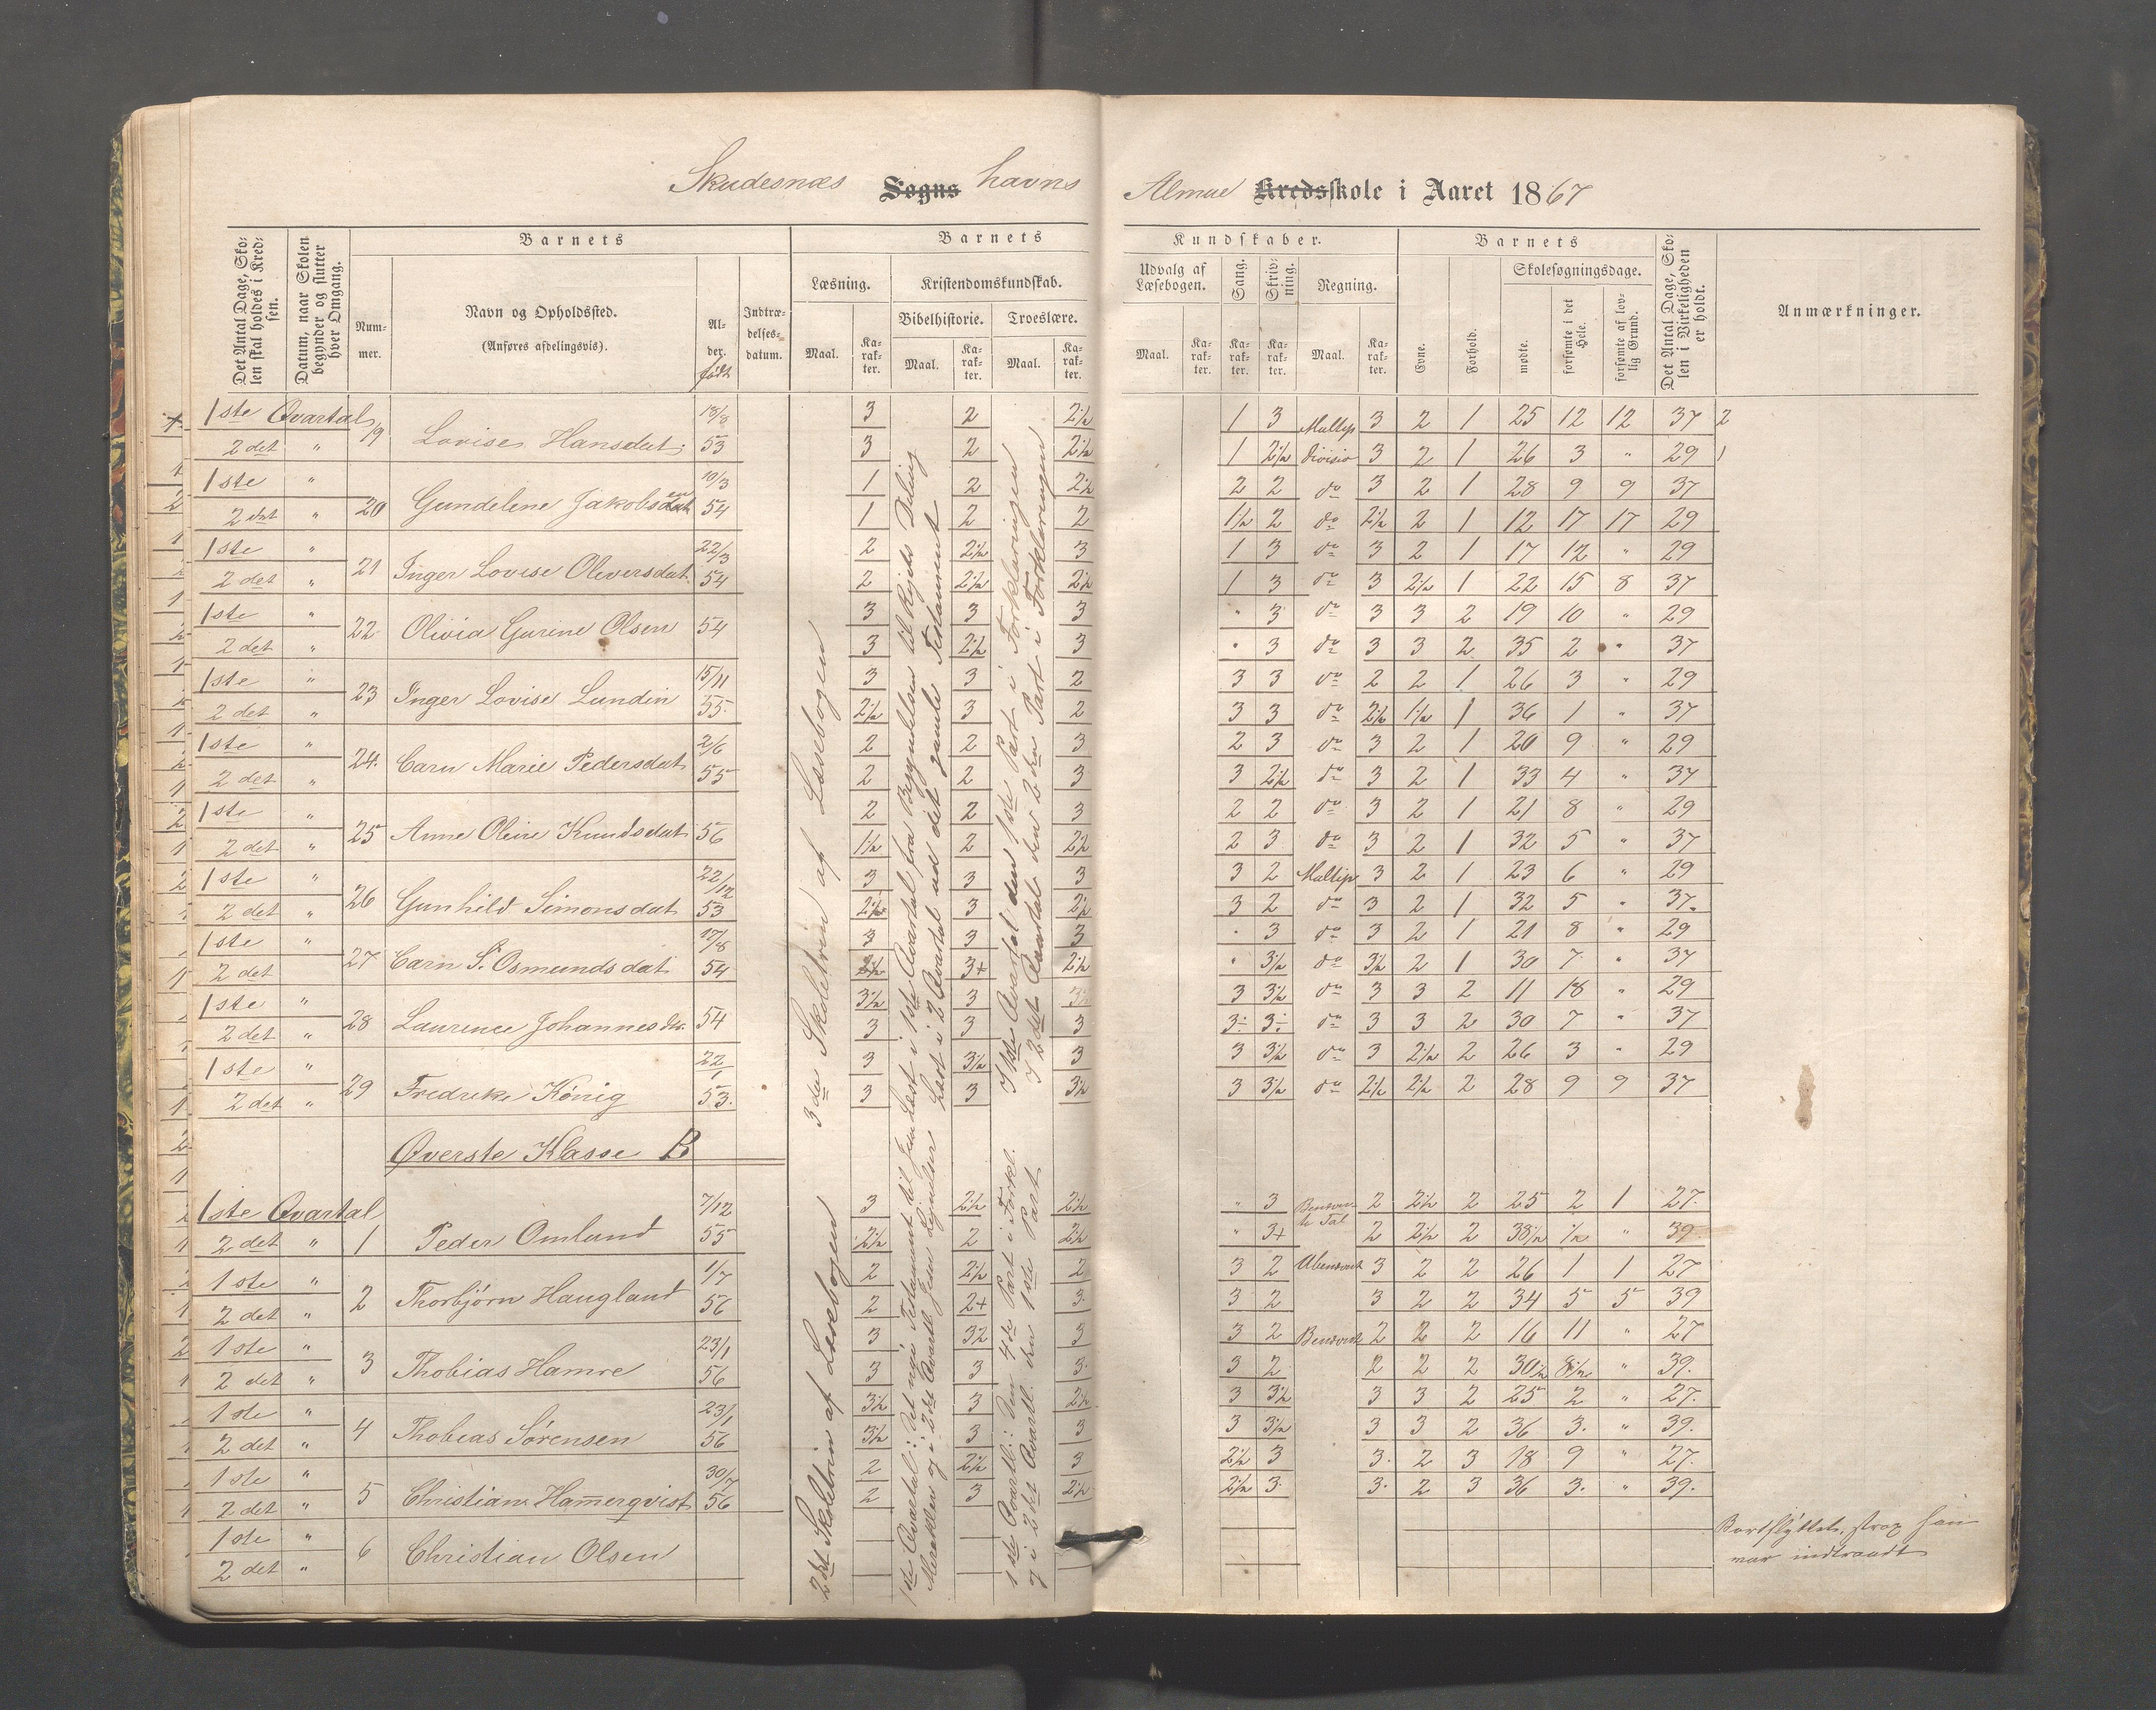 Skudesnæs Sogns havns Almue Kredsskole i Aaret 1867
Det Antal Dage, Skolen skal holdes i Kredsen.
Datum, naar Skolen begynder og slutter hver Omgang.
Barnets
Nummer.
Navn og Opholdssted.
(Anføres afdelingsvis).
Alder. født
Indtrædelsesdatum.
Barnets Kundskaber.
Læsning.
Kristendomskundskab.
Bibelhistorie.
Troeslære.
Maal. Karakter. Maal. Karakter. Maal. Karakter.
Udvalg af Læsebogen.
Maal. Karakter.
Sang. Karakter.
Skrivning. Karakter.
Regning.
Maal. Karakter.
Barnets
Evne. Forhold.
Skolesøgningsdage.
mødte. forsømte i det Hele. forsømte af lovlig Grund.
Det Antal Dage, Skolen i Virkeligheden er holdt.
Anmærkninger.
1ste Qvartal 19 Lovise Hansdat. 18/8 3 2 2½ 1 3 Multip 3 2 1 25 12 12 37 2
2det " 53 3 2 2½ 1 2½ Divisio 3 2 1 26 3 " 29 1
1ste " 20 Gundeline Jakobsdat 10/3 1 2 2½ 2 2 do 3 2 1 28 9 9 37
2det " 54 1 2 2 1½ 2 do 2½ 2 1 12 17 17 29
1ste " 21 Inger Lovise Oliversdat. 22/3 2 2½ 3 1 3 do 3 2 1 17 12 " 29
2det " 54 2 2½ 2½ 1 3 do 3 2½ 1 22 15 8 37
1ste " 22 Olivia Gurine Olsen 54 3 3 3 " 3 do 3 3 2 19 10 " 29
2det " 3 2½ 3 " 3 do 3 3 2 35 2 " 37
1ste " 23 Inger Lovise Lundin 15/11 3 3 2 3 3 do 2 2 1 26 3 " 29
2det " 55. 2½ 3 2 3 3 do 2½ 1½ 1 36 1 " 37
1ste " 24. Carn Marie Pedersdat 2/6 2 2 3 2 3 do 3 2 1 20 9 " 29
2det " 55 2 2 3 3 2½ do 3 2 1 33 4 " 37
1ste " 25 Anne Oline Knudsdat 56 2 2 3 2 2 do 3 2 1 21 8 " 29
2det " 1½ 2 2½ 2 3 do 3 2 1 32 5 " 37
1ste " 26 Gunhild Simonsdat 22/12 3 3 3 3 2 Multip 3 2 1 23 6 " 29
2det " 53 2½ 3 2½ 3 2 do 3 2 1 32 5 " 37.
1ste " 27 Carn S. Osmundsdat 17/8 3 3 3 " 3 do 3 2 1 21 8 " 29
2det 54 2½ 3+ 2½ " 3½ do 3½ 2 1 30 7 " 37
1ste " 28 Laurence Johannesdt. 54 3½ 3 3½ 3 3½ do 3 3 2 11 18 " 29
2det " 3 3 3 3÷ 3÷ do 3 3 2 30 7 " 37
1ste " 29 Fredrike König 22/1 3 3½ 3 3 3½ do 3 2½ 2 26 3 " 29
2det " 53. 3 3 3½ 3 3½ do 2½ 2½ 2 28 9 9 37
3die Skoletrin af Læsebogen
I 1ste Qvartal den 1ste Part i Forklaringen
I 2det Qvartal den 2den Part i Forklaringen
Øverste Klasse B
1ste Qvartal 7/12 3 2½ 2½ " 3 2 2½ 2 25 2 1 27.
2det " 1 Peder Omlund 55 2½ 2 2½ " 3+ 2 2½ 2 38½ ½ " 39
1ste " 2 Thorbjørn Haugland 1/7 2 2½ 2 3 2 Ubenævnt 3 2 2 26 1 1 27
2det " 56 2 2+ 3. 3 2 3 2 2 34 5 5 39
1ste " 3 Thobias Hamre 23/1 3 3½ 3 3 2 Benævnt 2 2 2 16 11 " 27
2det " 56 3 3 3. 3 2 2 2 2 30½ 8½ " 39.
1ste " 4 Thobias Sørensen 23/1 3½ 3 2½ 3 3½ 3 3 2 25 2 " 27.
2det " 56 3½ 3 3 3 3½ 3 3 2 36 3. " 39.
1ste " 5 Christian Hamerqvist 30/7 2 2½ 3 2½ 3 3. 2 3 18 9 " 27.
2det " 56 2 3 2½ 2½ 3. 3. 2 3 36 3. " 39.
1ste " 6 Christian Olsen
2det "
Bortflyttet, strax han
var indtraadt
2det Skoletrin af Læsebogen